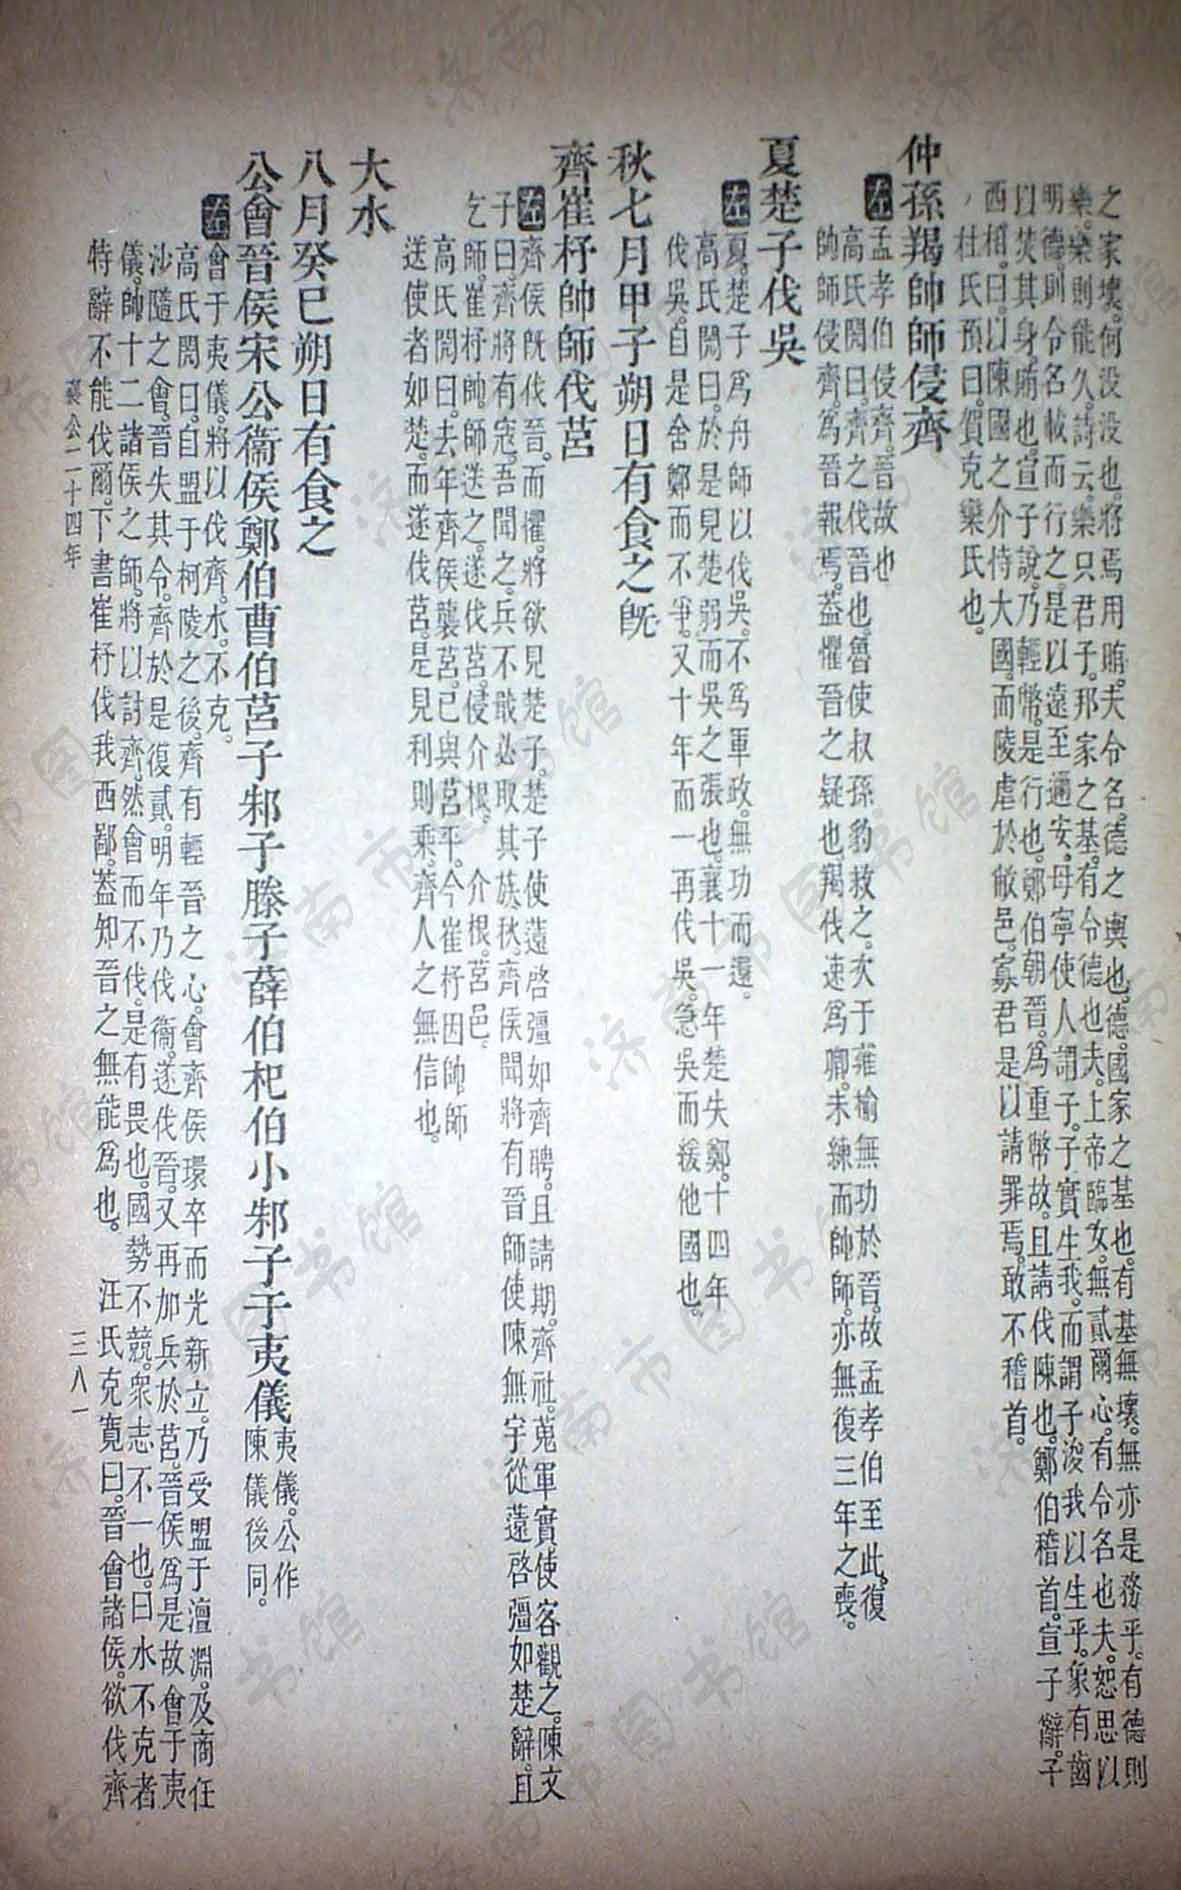 之家壞。何没没也。將焉用賄。夫令名。德之輿也。德。國家之基也。有基無壞。無亦是務乎。有德則
樂。樂則能久。詩云。樂只君子。邦家之基。有令德也夫。上帝臨女。無貳爾心。有令名也夫。恕思以
明德。則令名載而行之。是以遠至邇安。毋寧使人謂子。子實生我。而謂子浚我以生乎。象有齒
以焚其身。賄也。宣子說。乃輕幣。是行也。鄭伯朝晉。爲重幣故。且請伐陳也。鄭伯稽首。宣子辭。子
西相。曰。以陳國之介恃大國。而陵虐於敝邑。寡君是以請罪焉。敢不稽首。
杜氏預曰。賀克欒氏也。
仲孫羯帥師侵齊
左孟孝伯侵齊。晉故也
高氏閌曰。齊之伐晉也。魯使叔孫豹救之。次于雍榆。無功於晉。故孟孝伯至此。復
帥師侵齊。爲晉報焉。蓋懼晉之疑也。羯伐速爲卿。未練而帥師。亦無復三年之喪。
夏楚子伐吳
左夏。楚子爲舟師以伐。吳。不爲軍政。無功而還。
高氏閌曰。於是見楚弱而吳之張也。襄十一年楚失鄭。十四年
伐吳。自是舍鄭而不爭。又十年而一再伐吳。急吳而緩他國也。
秋七月甲子朔日有食之旣
齊崔杼帥師伐莒
左齊侯旣伐晉。而懼。將欲見楚子。楚子使薳啓彊如齊聘。且請期。齊社。蒐軍實。使客觀之。陳文
子曰。齊將有寇。吾聞之。兵不戢。必取其族。秋。齊侯聞將有晉師。使陳無宇從薳啓彊如楚。辭。且
乞師。崔杼帥。師送之。遂伐莒。侵介根。 介根。莒邑。
高氏閌曰。去年齊侯襲莒。已與莒平。今崔杼因帥師
送使者如楚。而遂伐莒。是見利則乘。齊人之無信也。
大水
八月癸巳朔日有食之
公會晉侯宋公衞侯鄭伯曹伯莒子邾子滕子薛伯杞伯小邾子于夷儀夷儀。公作陳儀後同。
左會于夷儀。將以伐齊。水。不克。
高氏閌曰。自盟于柯陵之後。齊有輕晉之心。會齊侯環卒而光新立。乃受盟于澶淵。及商任
沙隨之會。晉失其令。齊於是復貳。明年乃伐衞。遂伐晉。又再加兵於莒。晉侯爲是故會于夷
儀。帥十二諸侯之師。將以討齊。然會而不伐。是有畏也。國勢不競。衆志不一也。曰水不克者
特辭不能伐爾。下書崔杼伐我西鄙。蓋知晉之無能爲也。 汪氏克寬曰。晉會諸侯。欲伐齊
襄公二十四年
三八一
济南市图书馆